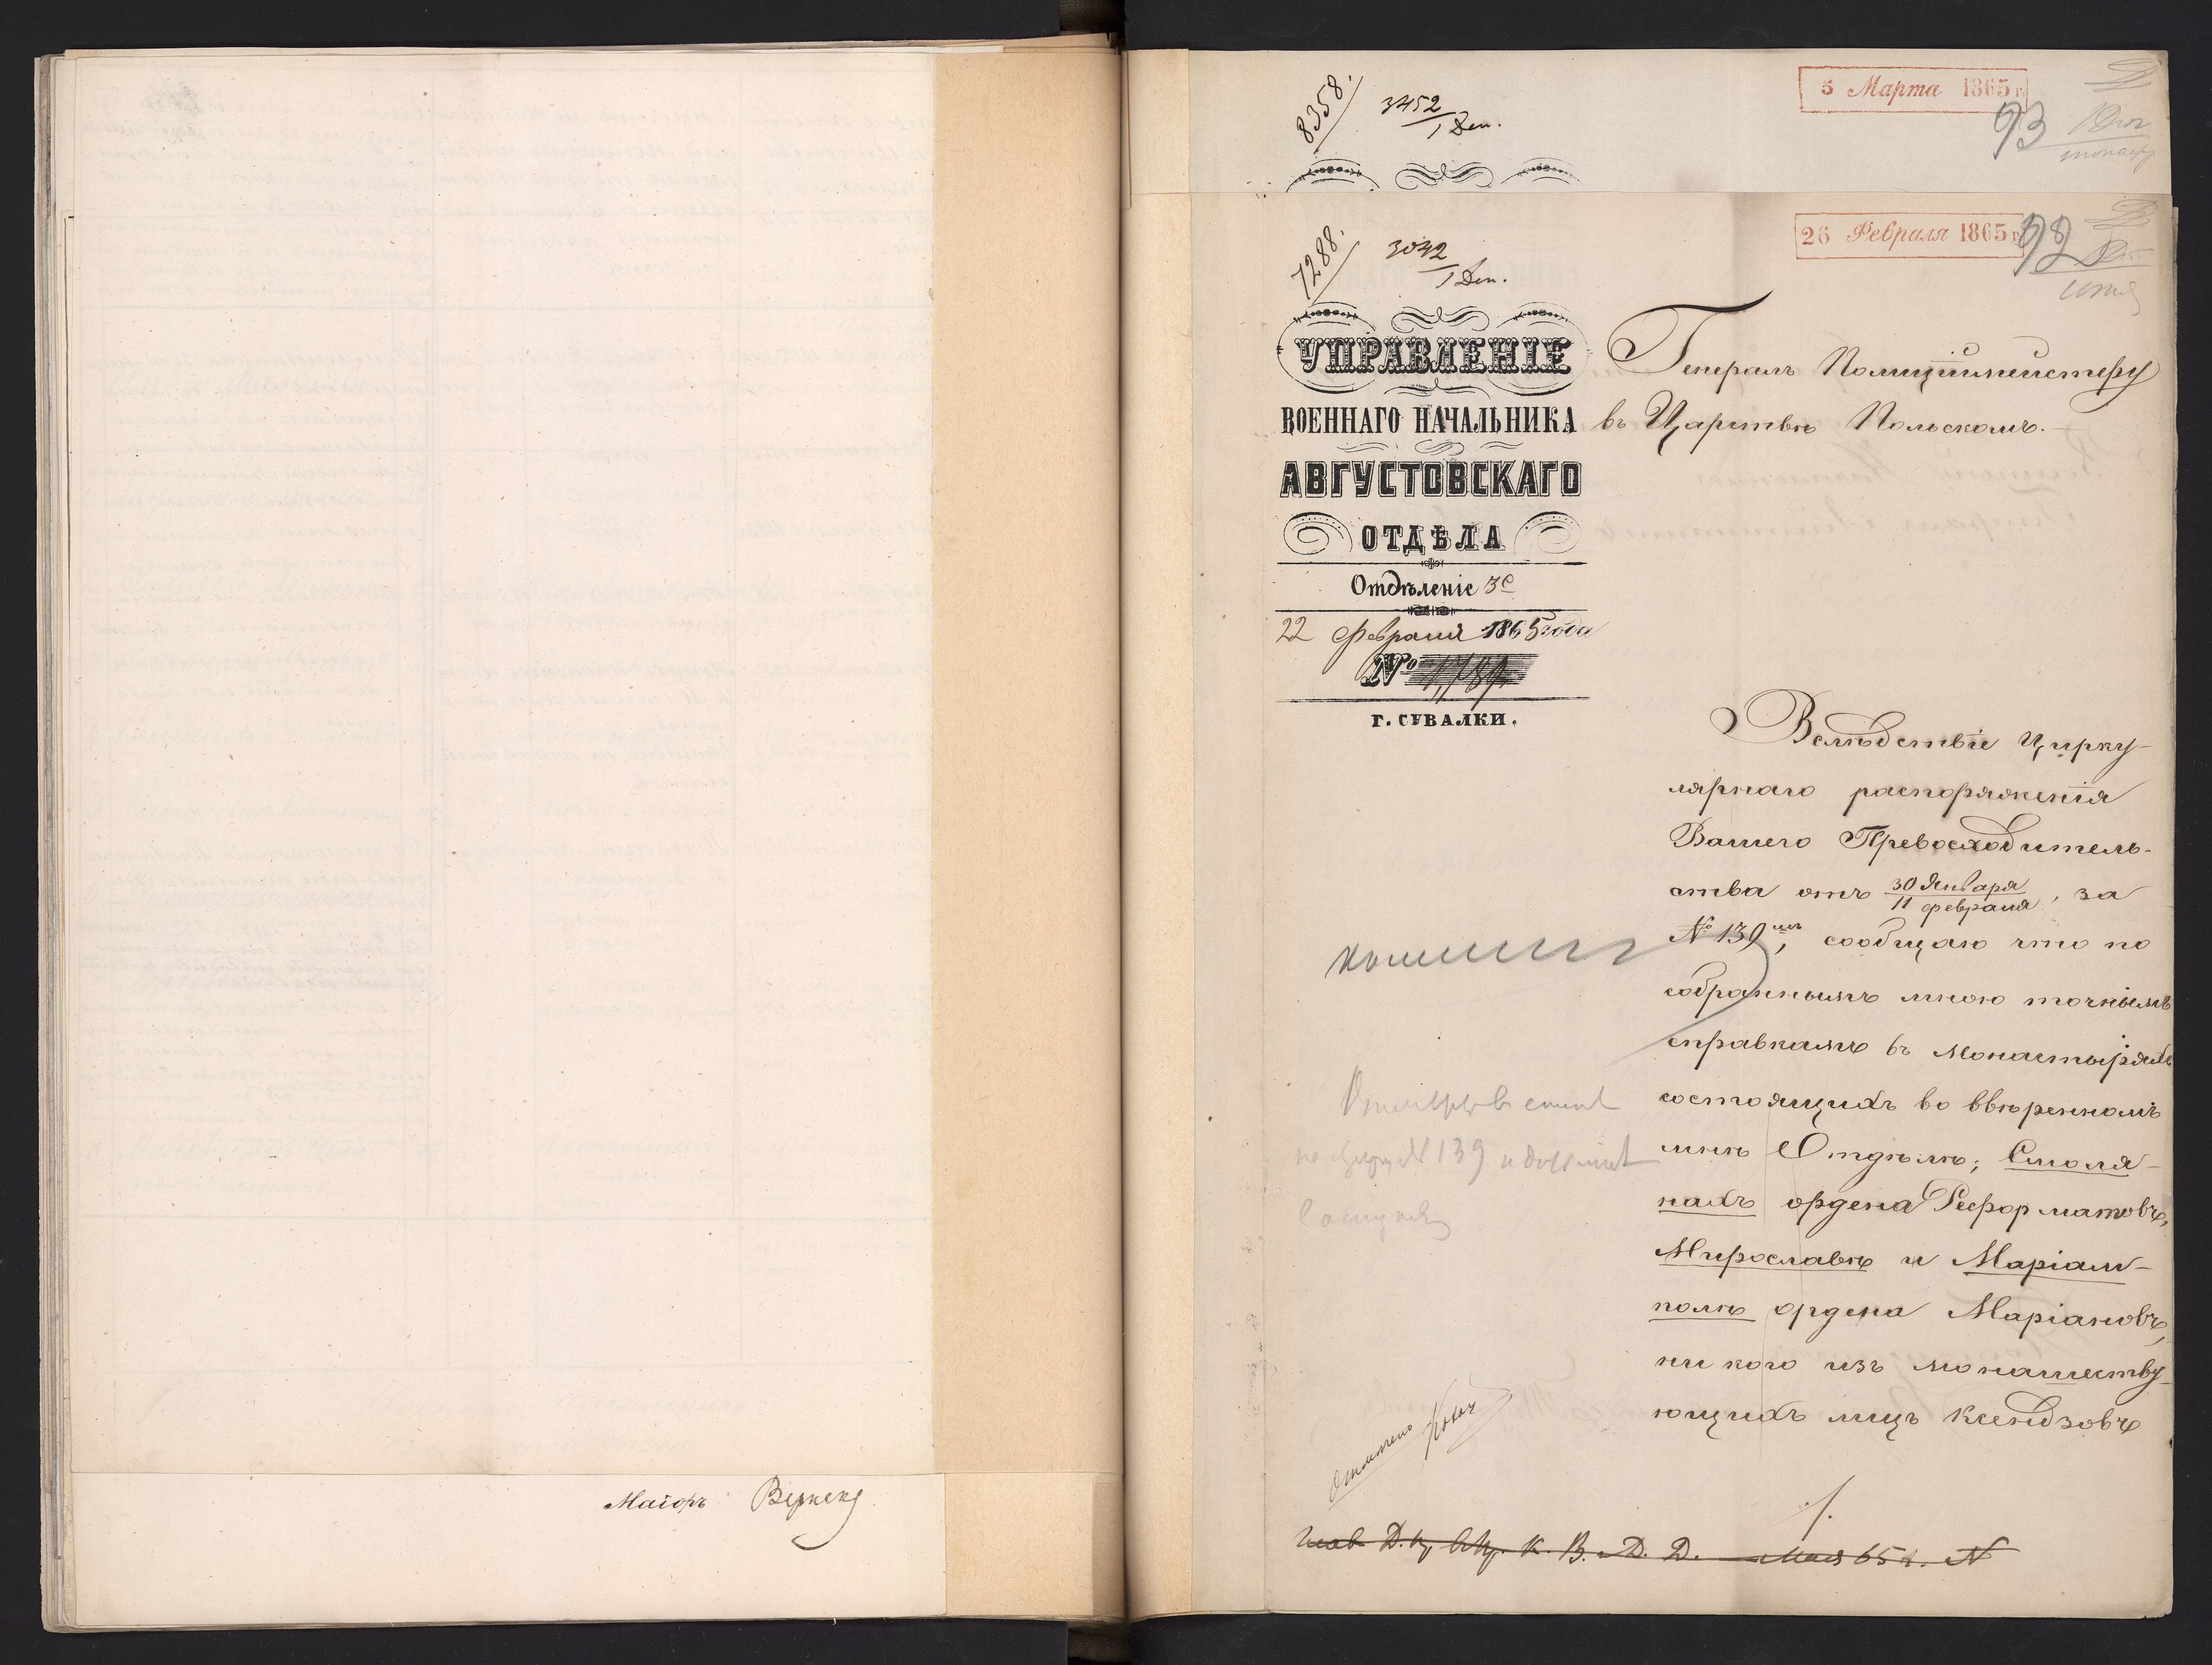 Маіоръ Вернеке
8358.
3452
1 Деп.
5 Марта 1865 г.
93
7288.
3042
1 Деп.
26 Февраля 1865 г.
92
УПРАВЛЕНІЕ
ВОЕННАГО НАЧАЛЬНИКА
АВГУСТОВСКАГО
ОТДѢЛА
Отдѣленіе 3е
22 Февраля 1865 года
№
Г. СУВАЛКИ.
Генералъ Полиціймейстеру
въ Царствѣ Польскомъ.
Вслѣдствіе Цирку-
лярнаго распоряженія
Вашего Превосходитель-
ства отъ 30 Января / 11 февраля, за
№ 139мъ, сообщаю что по
собраннымъ мною точнымъ
справкамъ въ Монастыряхъ
состоящихъ во ввѣренномъ
мнѣ Отдѣлѣ; Смоля-
нахъ ордена Реформатовъ,
Мирославѣ и Маріам-
полѣ ордена Маріановъ,
ни кого изъ монашеству-
ющихъ лицъ Ксендзовъ
на № 139
К. В. Д. Д. Мая 65 г. №